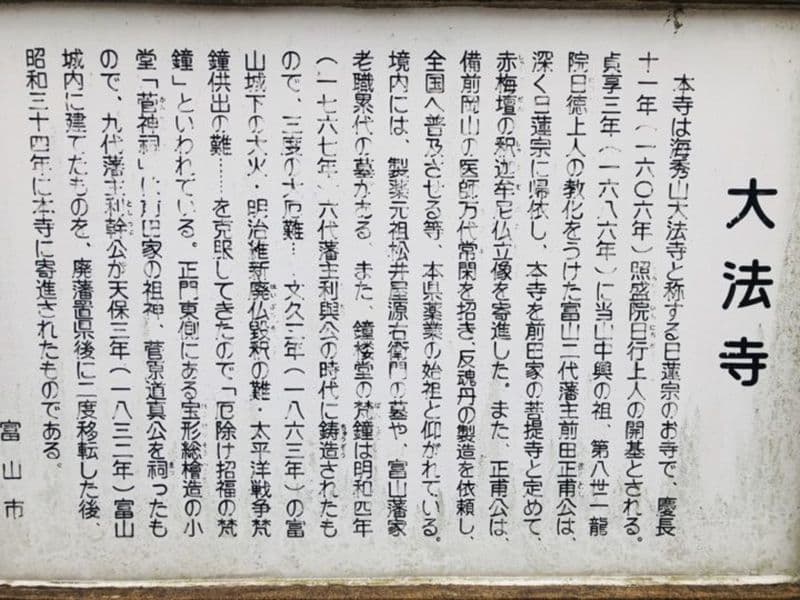 大法寺
本寺は海秀山大法寺と称する日蓮宗のお寺で、慶長
十一年（一六〇六年）照盛院日行上人の開基とされる。
貞享三年（一六八六年）に当山中興の祖、第八世一龍
院日徳上人の教化をうけた富山二代藩主前田正甫公は、
深く日蓮宗に帰依し、本寺を前田家の菩提寺と定めて、
赤梅壇の釈迦牟尼仏立像を寄進した。また、正甫公は、
備前岡山の医師万代常閑を招き、反魂丹の製造を依頼し、
全国へ普及させる等、本県薬業の始祖と仰がれている。
境内には、製薬元祖松井屋源右衛門の墓や、富山藩家
老職累代の墓がある。また、鐘楼堂の梵鐘は明和四年
（一七六七年）六代藩主利與公の時代に鋳造されたも
ので、三度の大厄難…文久三年（一八六三年）の富
山城下の大火・明治維新廃仏毀釈の難・太平洋戦争梵
鐘供出の難……を克服してきたので「厄除け招福の梵
鐘」といわれている。正門東側にある宝形総檜造の小
堂「菅神祠」は前田家の祖神、菅原道真公を祠ったも
ので、九代藩主利幹公が天保三年（一八三二年）富山
城内に建てたものを、廃藩置県後に二度移転した後、
昭和三十四年に本寺に寄進されたものである。
富山市